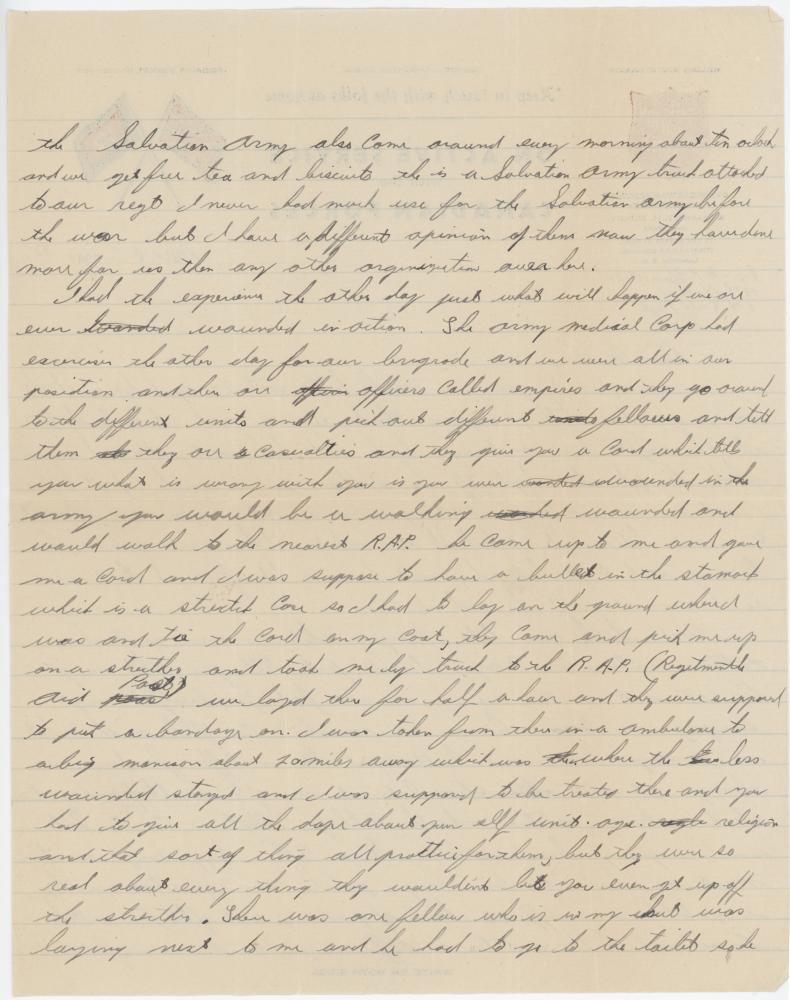 the Salvation Army also come around every morning about ten oclock
and we get free tea and biscuits the is a Salvation Army truck attached
to our regt I never had much use for the Salvation army before
the war but I have a different opinion of them now they have done
more for us then any other organization over here.
I had the experience the other day just what will happen if we are
ever wounded in action. The army medical Corp had
excercises the other day for our brigrade and we were all in our
position and then our officers called empires and they go around
to the different units and pick out different fellows and tell
them they are casualties and they give you a card which tells
you what is wrong with you is you were wounded in the
army you would be a walking wounded and
would walk to the nearest R.A.P. he came up to me and gave
me a card and I was suppose to have a bullet in the stomach
which is a stretch case so I had to lay on the ground where I
was and tie the card on my coat, they came and pick me up
on a stretcher and took me by truck to the R.A.P. (Regitmentle
Aid Post) we layed there for half a hour and they were supposed
to put a bandage on. I was taken from there in a ambulance to
a big mansion about 20 miles away which was where the less
wounded stayed and I was supposed to be treated there and you
had to give all the dope about your self unit. age. religion
and that sort of thing all prattice for them, but they were so
real about every thing they wouldint let you even get up off
the stretcher. There was one fellow who is in my hut was
laying next to me and he had to go to the toilet so he
"Keep in touch with the folks at home"